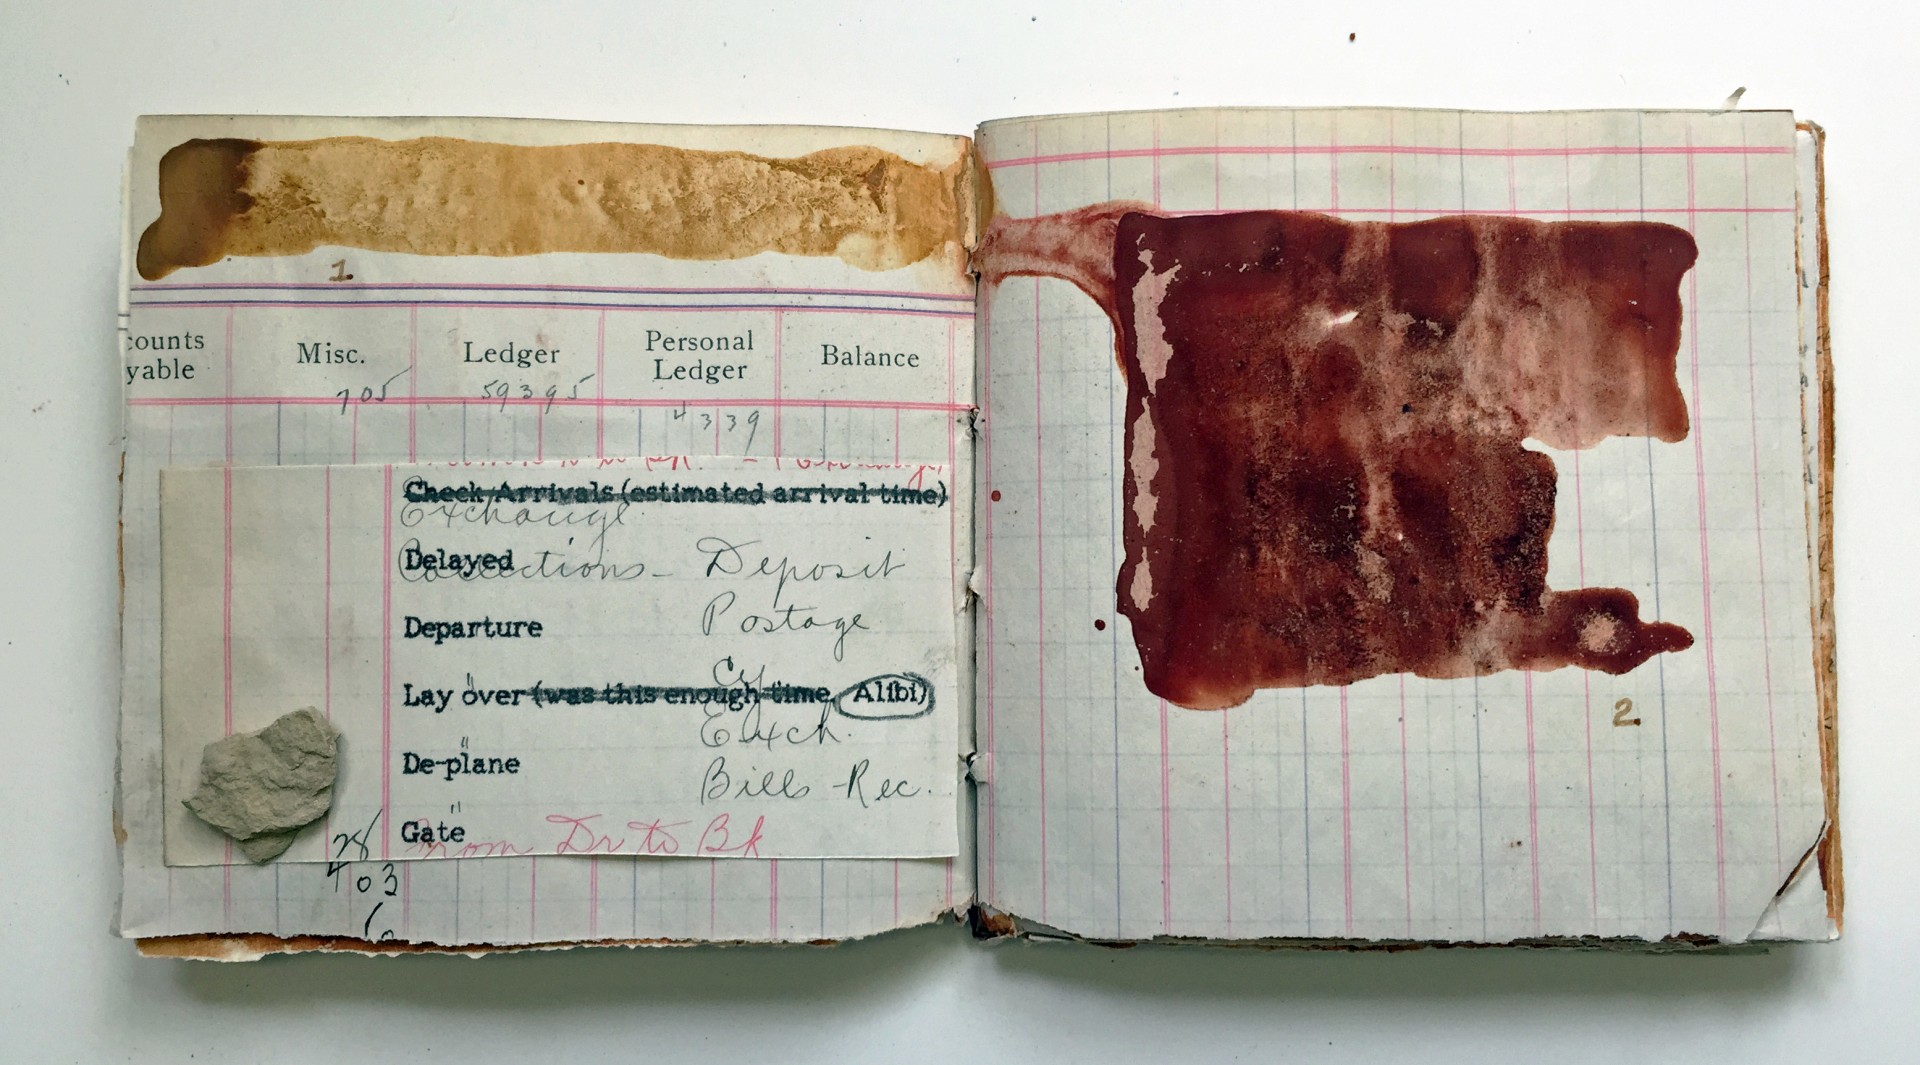 1.
counts
yable
Misc.
Ledger
Personal
Ledger
Balance
705
59395
4339
Check Arrivals (estimated arrival time)
Exchange
Delayed
Collections - Deposit
Departure
Postage
Lay over (was this enough time, Alibi)
Exch.
De-plane
Bills - Rec.
Gate
From Dr to Bk
28
403
2.